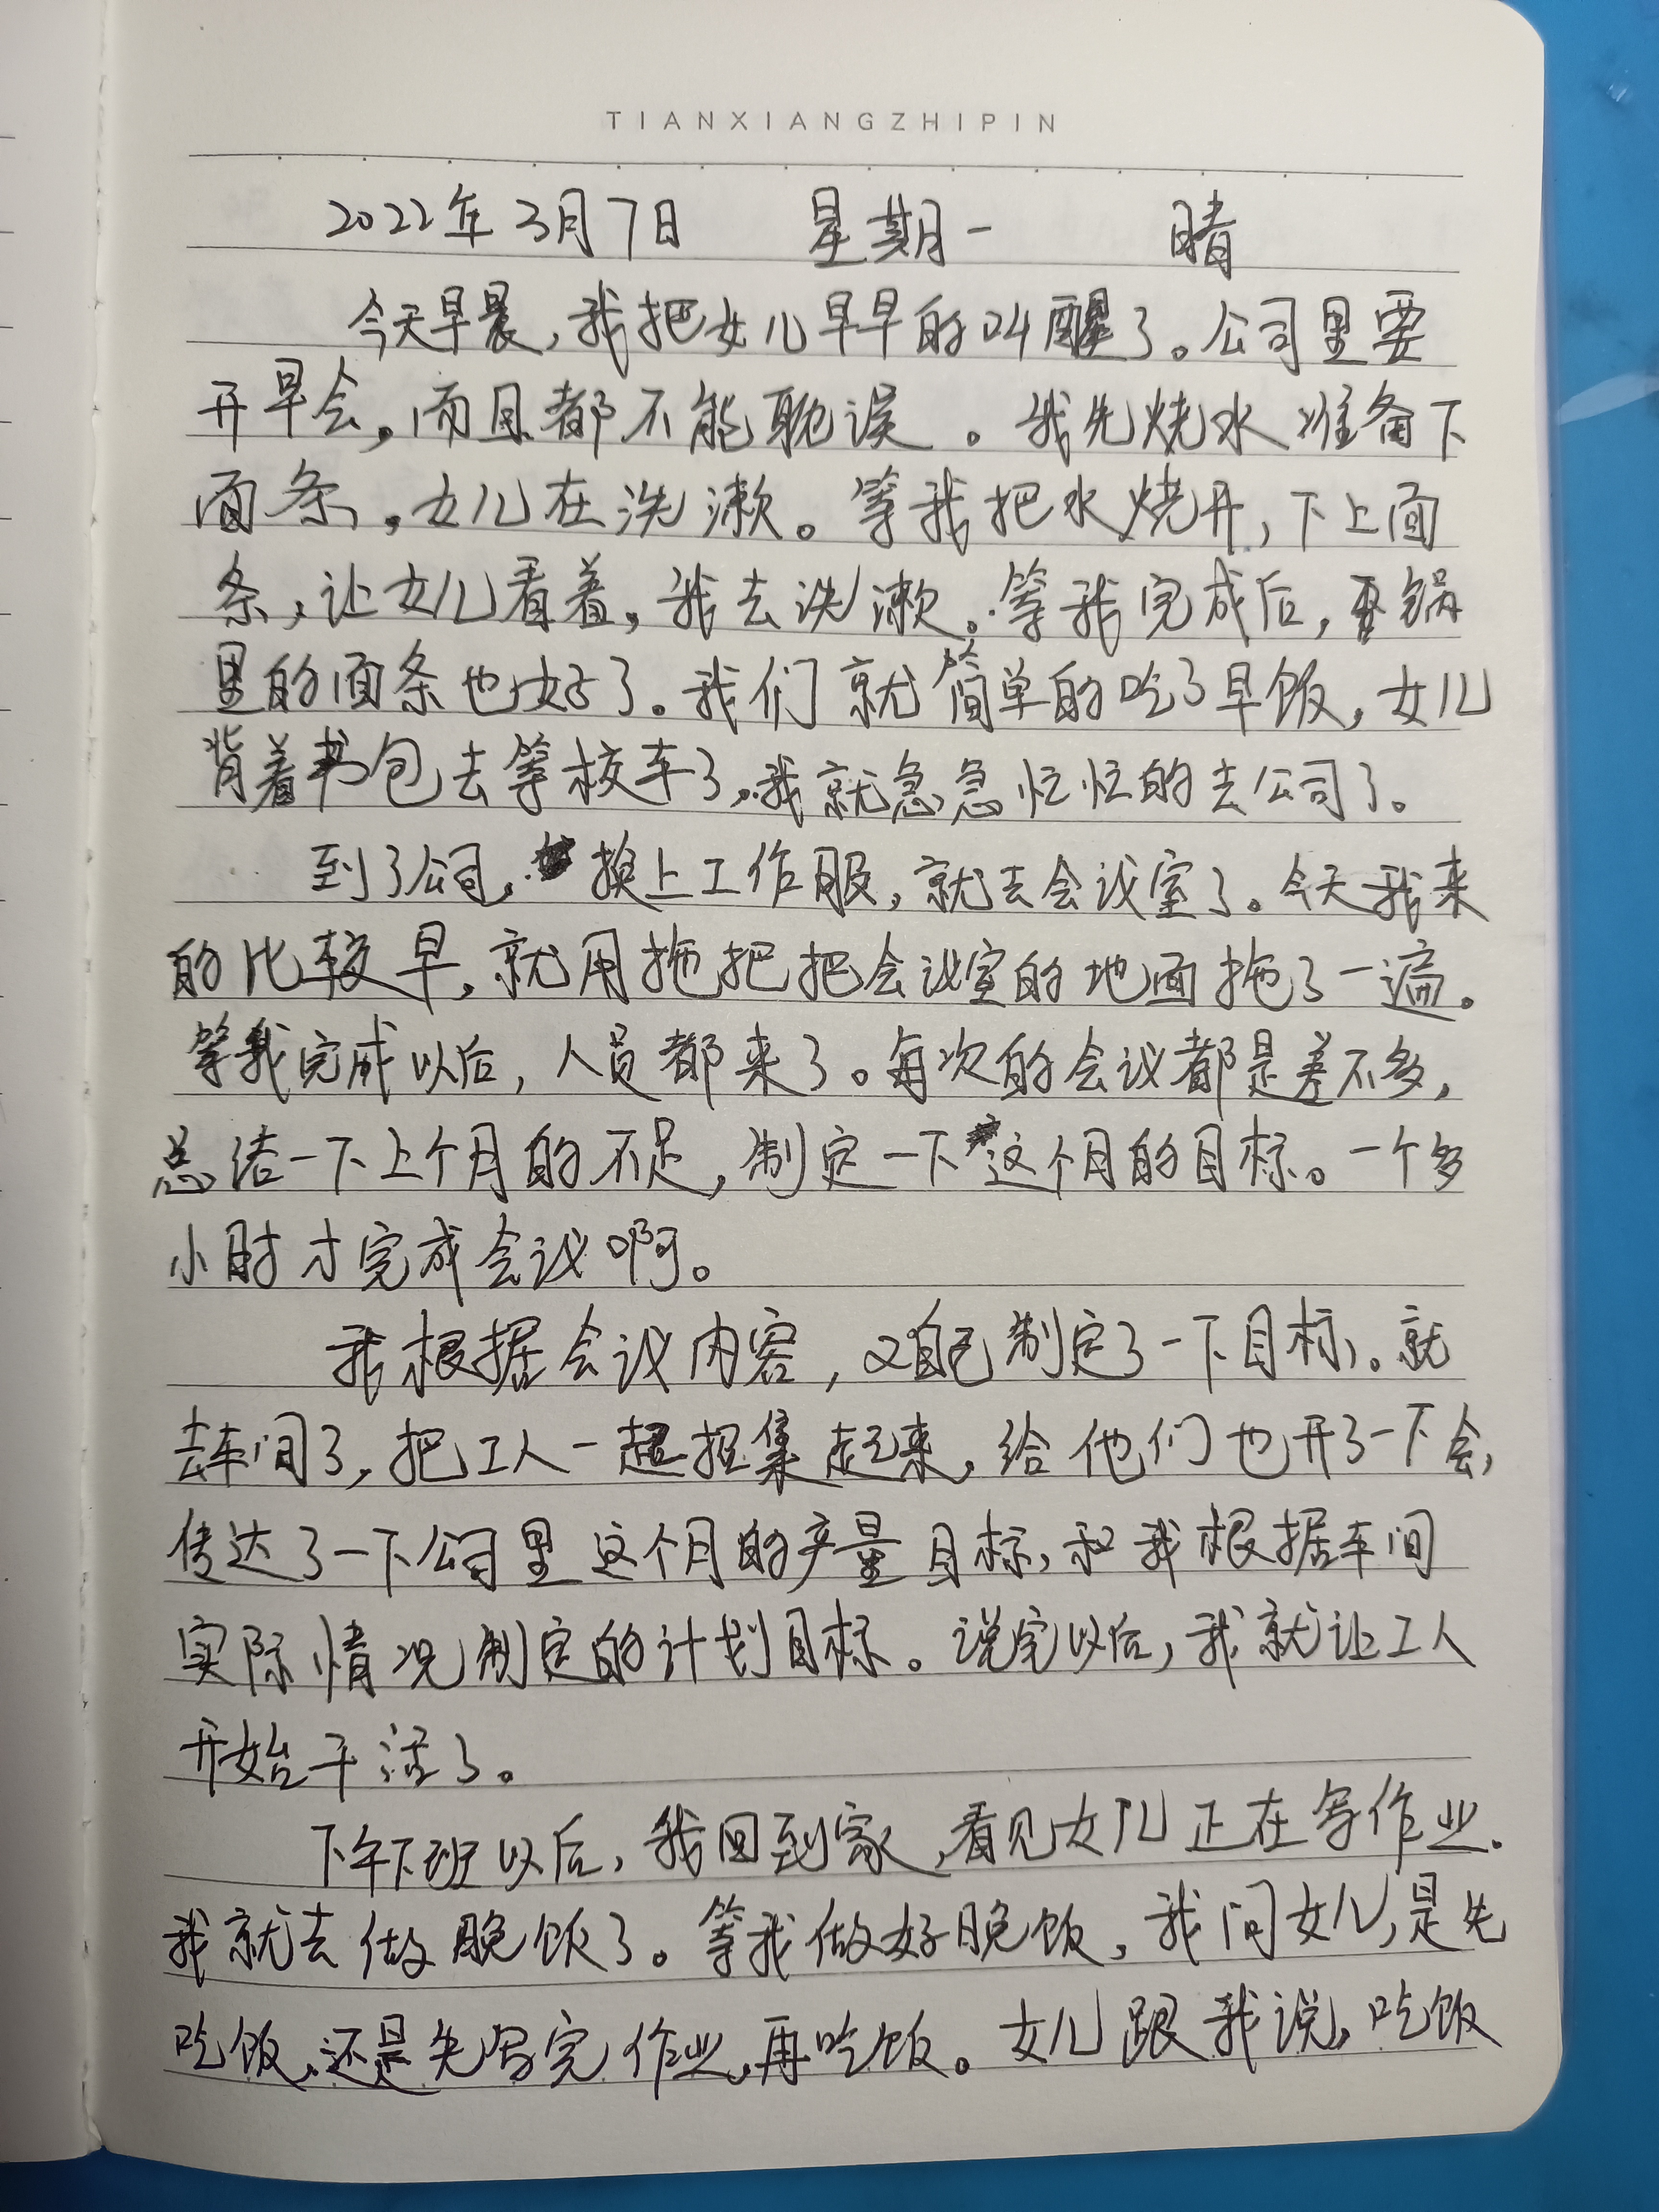 TIANXIANGZHIPIN
2022年3月7日 星期一 晴
今天早晨,我把女儿早早的叫醒了。公司里要
开早会,而且都不能耽误。我先烧水准备下
面条,女儿在洗漱。等我把水烧开,下上面
条,让女儿看着,我去洗漱。等我完成后,锅
里的面条也好了。我们就简单的吃了早饭,女儿
背着书包去等校车了,我就急急忙忙的去公司了。
到了公司,换上工作服,就去会议室了。今天我来
的比较早,就用拖把把会议室的地面拖了一遍。
等我完成以后,人员都来了。每次的会议都是差不多,
总结一下上个月的不足,制定一下这个月的目标。一个多
小时才完成会议啊。
我根据会议内容,又自己制定了一下目标。就
去车间了,把工人一起招集起来,给他们也开了一下会,
传达了一下公司里这个月的产量目标,和我根据车间
实际情况制定的计划目标。说完以后,我就让工人
开始干活了。
下午下班以后,我回到家,看见女儿正在写作业.
我就去做晚饭了。等我做好晚饭,我问女儿,是先
吃饭,还是先写完作业,再吃饭。女儿跟我说,吃饭